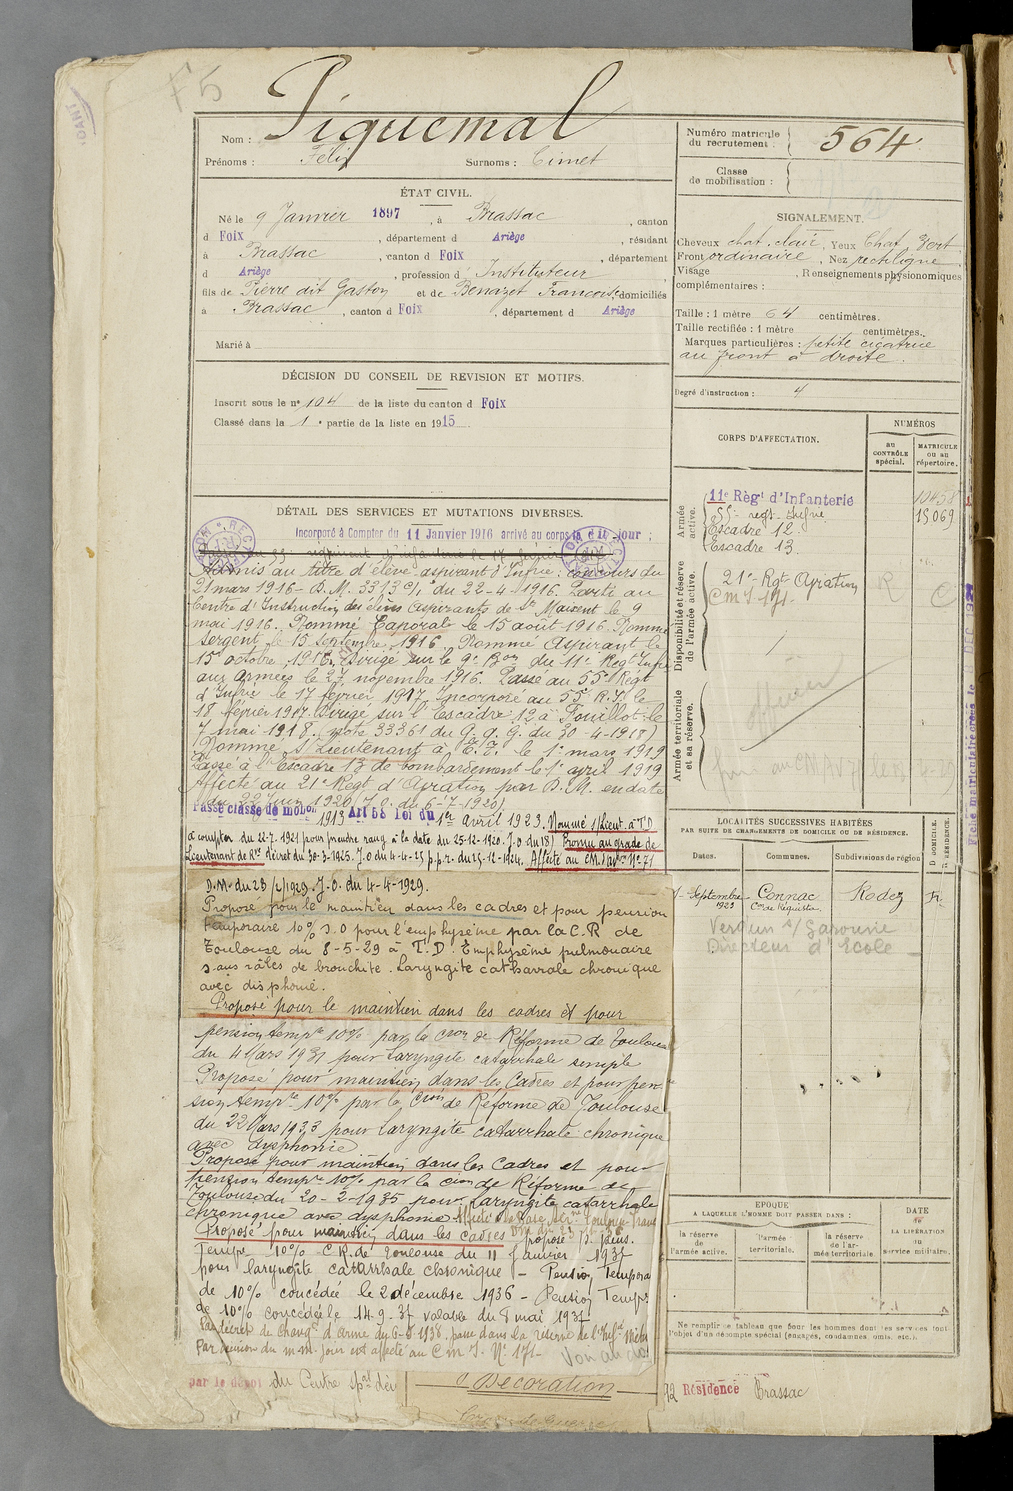 F5
Nom : Piquemal
Prénoms : Félix Surnoms : Cimet
ÉTAT CIVIL.
Né le 9 Janvier 1897, à Brassac, canton
d Foix, département d Ariège, résidant
à Brassac, canton d Foix, département
d Ariège, profession d' Instituteur
fils de Pierre dit Gaston et de Benazet Francoise, domiciliés
à Brassac, canton d Foix, département d Ariège
Marié à
DÉCISION DU CONSEIL DE REVISION ET MOTIFS.
Inscrit sous le n° 104 de la liste du canton d Foix
Classé dans la 1e partie de la liste en 1915
DÉTAIL DES SERVICES ET MUTATIONS DIVERSES.
Incorporé à Compter du 11 Janvier 1916 arrivé au corps le d II jour ;
Admis au titre d'élève aspirant d'Infrie : concours du
21 mars 1916 - D.M. 33139/1 du 22-4-1916. Parti au
Centre d'Instruction des élèves aspirants de St Maixent le 9
mai 1916. Nommé Caporal le 15 août 1916. Nommé
Sergent le 15 Septembre 1916. Nommé Aspirant le
15 octobre 1916. Dirigé sur le 9e Bon du 11e Regt Infie
aux armées le 27 novembre 1916. Passé au 55e Regt
d'Infrie le 17 février 1917. Incorporé au 55e R.I. le
18 février 1917. Dirigé sur l'Escadre 12 à Fouillot le
7 mai 1918. note 33361 du G.Q.G. du 30-4-1918)
Nommé S/Lieutenant à T.T. le 1er mars 1919
Passé à l'Escadre 13 de bombardement le 1er avril 1919
Affecté au 21e Regt d'Aviation par D.M. en date
du 22 Juin 1920 (J.O. du 6-7-1920)
Passé classe de mobon 1913 Art 58 loi du 1er avril 1923. Nommé S/Lieut. à T.D
à compter du 22-7-1921 pour prendre rang à la date du 25-12-1920. J.O du 18/ Promu au grade de
Lieutenant de Rve Décret du 30-3-1925. J.O du 4-4-25 p.p.r. du 25-12-1924. Affecté au C.M. d'avion N° 71
D.M. du 23/2/1929. J.O. du 4-4-1929.
Proposé pour le maintien dans les cadres et pour pension
temporaire 10% J.O pour l'emphysème par la C.R de
Toulouse du 8-5-29 à T.D. Emphysème pulmonaire
sans râles de bronchite. Laryngite catharrale chronique
avec disphonie.
Proposé pour le maintien dans les cadres et pour
pension tempre 10% par la Cion de Réforme de Toulouse
du 4 Mars 1931 pour Laryngite catarrhale simple
Proposé pour maintien dans les Cadres et pour pen-
sion tempre 10% par la Cion de Réforme de Toulouse
du 22 Mars 1933 pour Laryngite catarrhale chronique
avec dysphonie
Proposé pour maintien dans les Cadres et pour
pension tempre 10% par la Cion de Réforme de
Toulouse du 20-2-1935 pour Laryngite catarrhale
chronique avec dysphonie
Proposé pour maintien dans les cadres proposé p. pens.
Tempre 10% C.R. de Toulouse du 11 Janvier 1937
pour laryngite catarrhale chronique - Pension Tempora
de 10% concédée le 2 décembre 1936 - Pension Tempre
de 10% concédée le 14.9.37 valable du 8 mai 1937
Par décret de changt d'arme du 6-8-1938, passe dans la réserve de l'Infrie
Par décision du m.m. jour est affecté au C M I. N° 171-
Voir au dos
par le dépôt du Centre
Décoration
Croix de Guerre
Numéro matricule
du recrutement : 564
Classe
de mobilisation :
SIGNALEMENT.
Cheveux chat. clair, Yeux Chat. Vert
Front ordinaire, Nez rectiligne
Visage , Renseignements physionomiques
complémentaires :
Taille : 1 mètre 64 centimètres.
Taille rectifiée : 1 mètre centimètres.
Marques particulières : petite cicatrice
au front à droite.
Degré d'instruction : 4
CORPS D'AFFECTATION.
NUMÉROS
au
CONTRÔLE
spécial.
MATRICULE
ou au
répertoire.
Armée
active.
11e Règt d'Infanterie
Escadre 12.
Escadre 13.
15069
Disponibilité et réserve
de l'armée active.
21e Rgt Aviation
C m I 171.
R
C
Armée territoriale
et sa réserve.
officier
LOCALITÉS SUCCESSIVES HABITÉES
PAR SUITE DE CHANGEMENTS DE DOMICILE OU DE RÉSIDENCE.
Dates.
Communes.
Subdivisions de région
D DOMICILE.
R RÉSIDENCE.
Septembre 1923
Connac
Con de Réquista
Rodez
R.
Verdun s/ Garonne
Directeur d'Ecole
EPOQUE
A LAQUELLE L'HOMME DOIT PASSER DANS :
la réserve
de
l'armée active.
l'armée
territoriale.
la réserve
de l'ar-
mée territoriale
DATE
de
LA LIBÉRATION
du
service militaire.
Ne remplir ce tableau que pour les hommes dont les services font
l'objet d'un décompte spécial (engagés, condamnés, omis, etc.).
Résidence Brassac
Fiche matriculaire créée le DEC 192